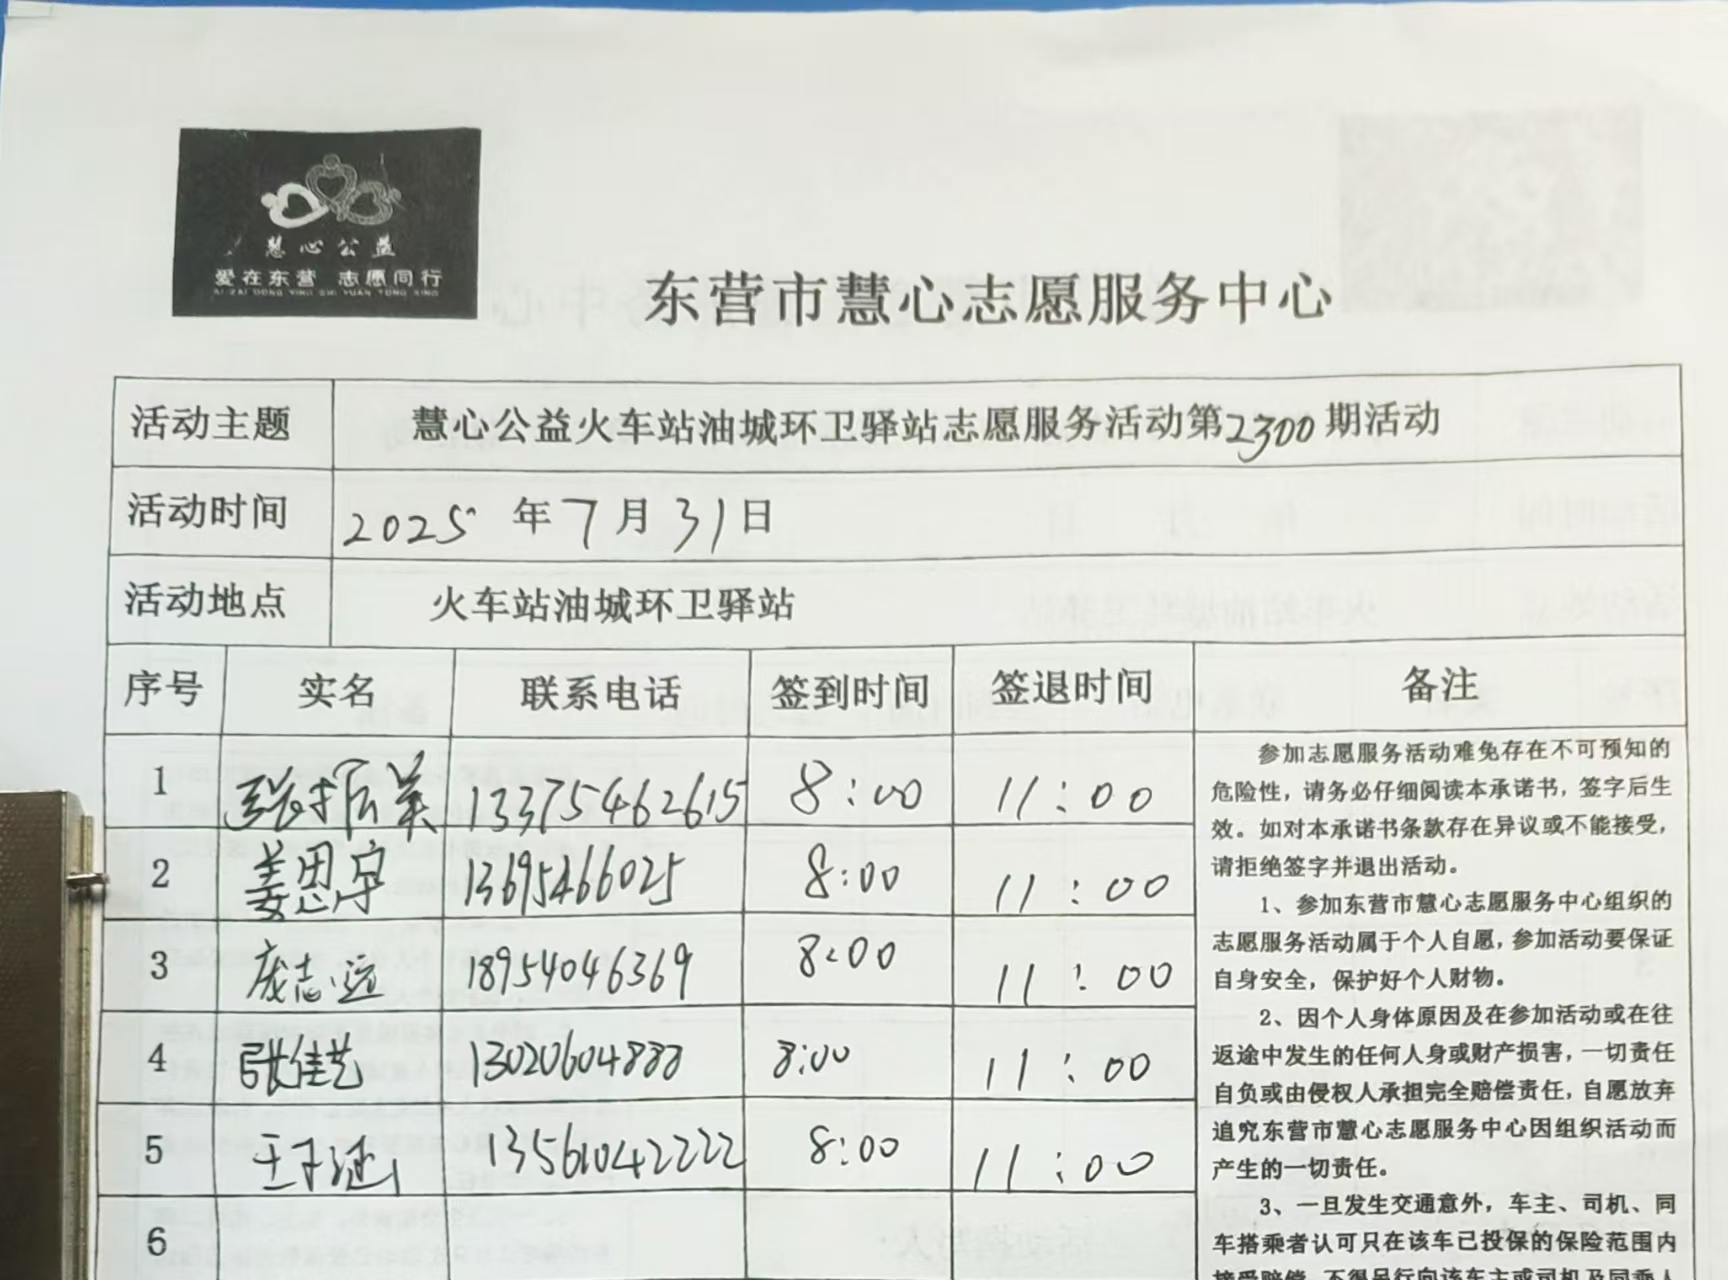 慧心公益
爱在东营 志愿同行
AI ZAI DONG YING ZHI YUAN TONG XING
东营市慧心志愿服务中心
活动主题 慧心公益火车站油城环卫驿站志愿服务活动第2300期活动
活动时间 2025年7月31日
活动地点 火车站油城环卫驿站
序号 实名 联系电话 签到时间 签退时间 备注
1 13375462615 8:00 11:00
2 姜思宇 13695466025 8:00 11:00
3 庞志远 18954046369 8:00 11:00
4 张佳艺 13020604888 8:00 11:00
5 王子涵 13561042222 8:00 11:00
6
参加志愿服务活动难免存在不可预知的
危险性，请务必仔细阅读本承诺书，签字后生
效。如对本承诺书条款存在异议或不能接受，
请拒绝签字并退出活动。
1、参加东营市慧心志愿服务中心组织的
志愿服务活动属于个人自愿，参加活动要保证
自身安全，保护好个人财物。
2、因个人身体原因及在参加活动或在往
返途中发生的任何人身或财产损害，一切责任
自负或由侵权人承担完全赔偿责任，自愿放弃
追究东营市慧心志愿服务中心因组织活动而
产生的一切责任。
3、一旦发生交通意外，车主、司机、同
车搭乘者认可只在该车已投保的保险范围内
接受赔偿，不得另行向该车主或司机及同乘人